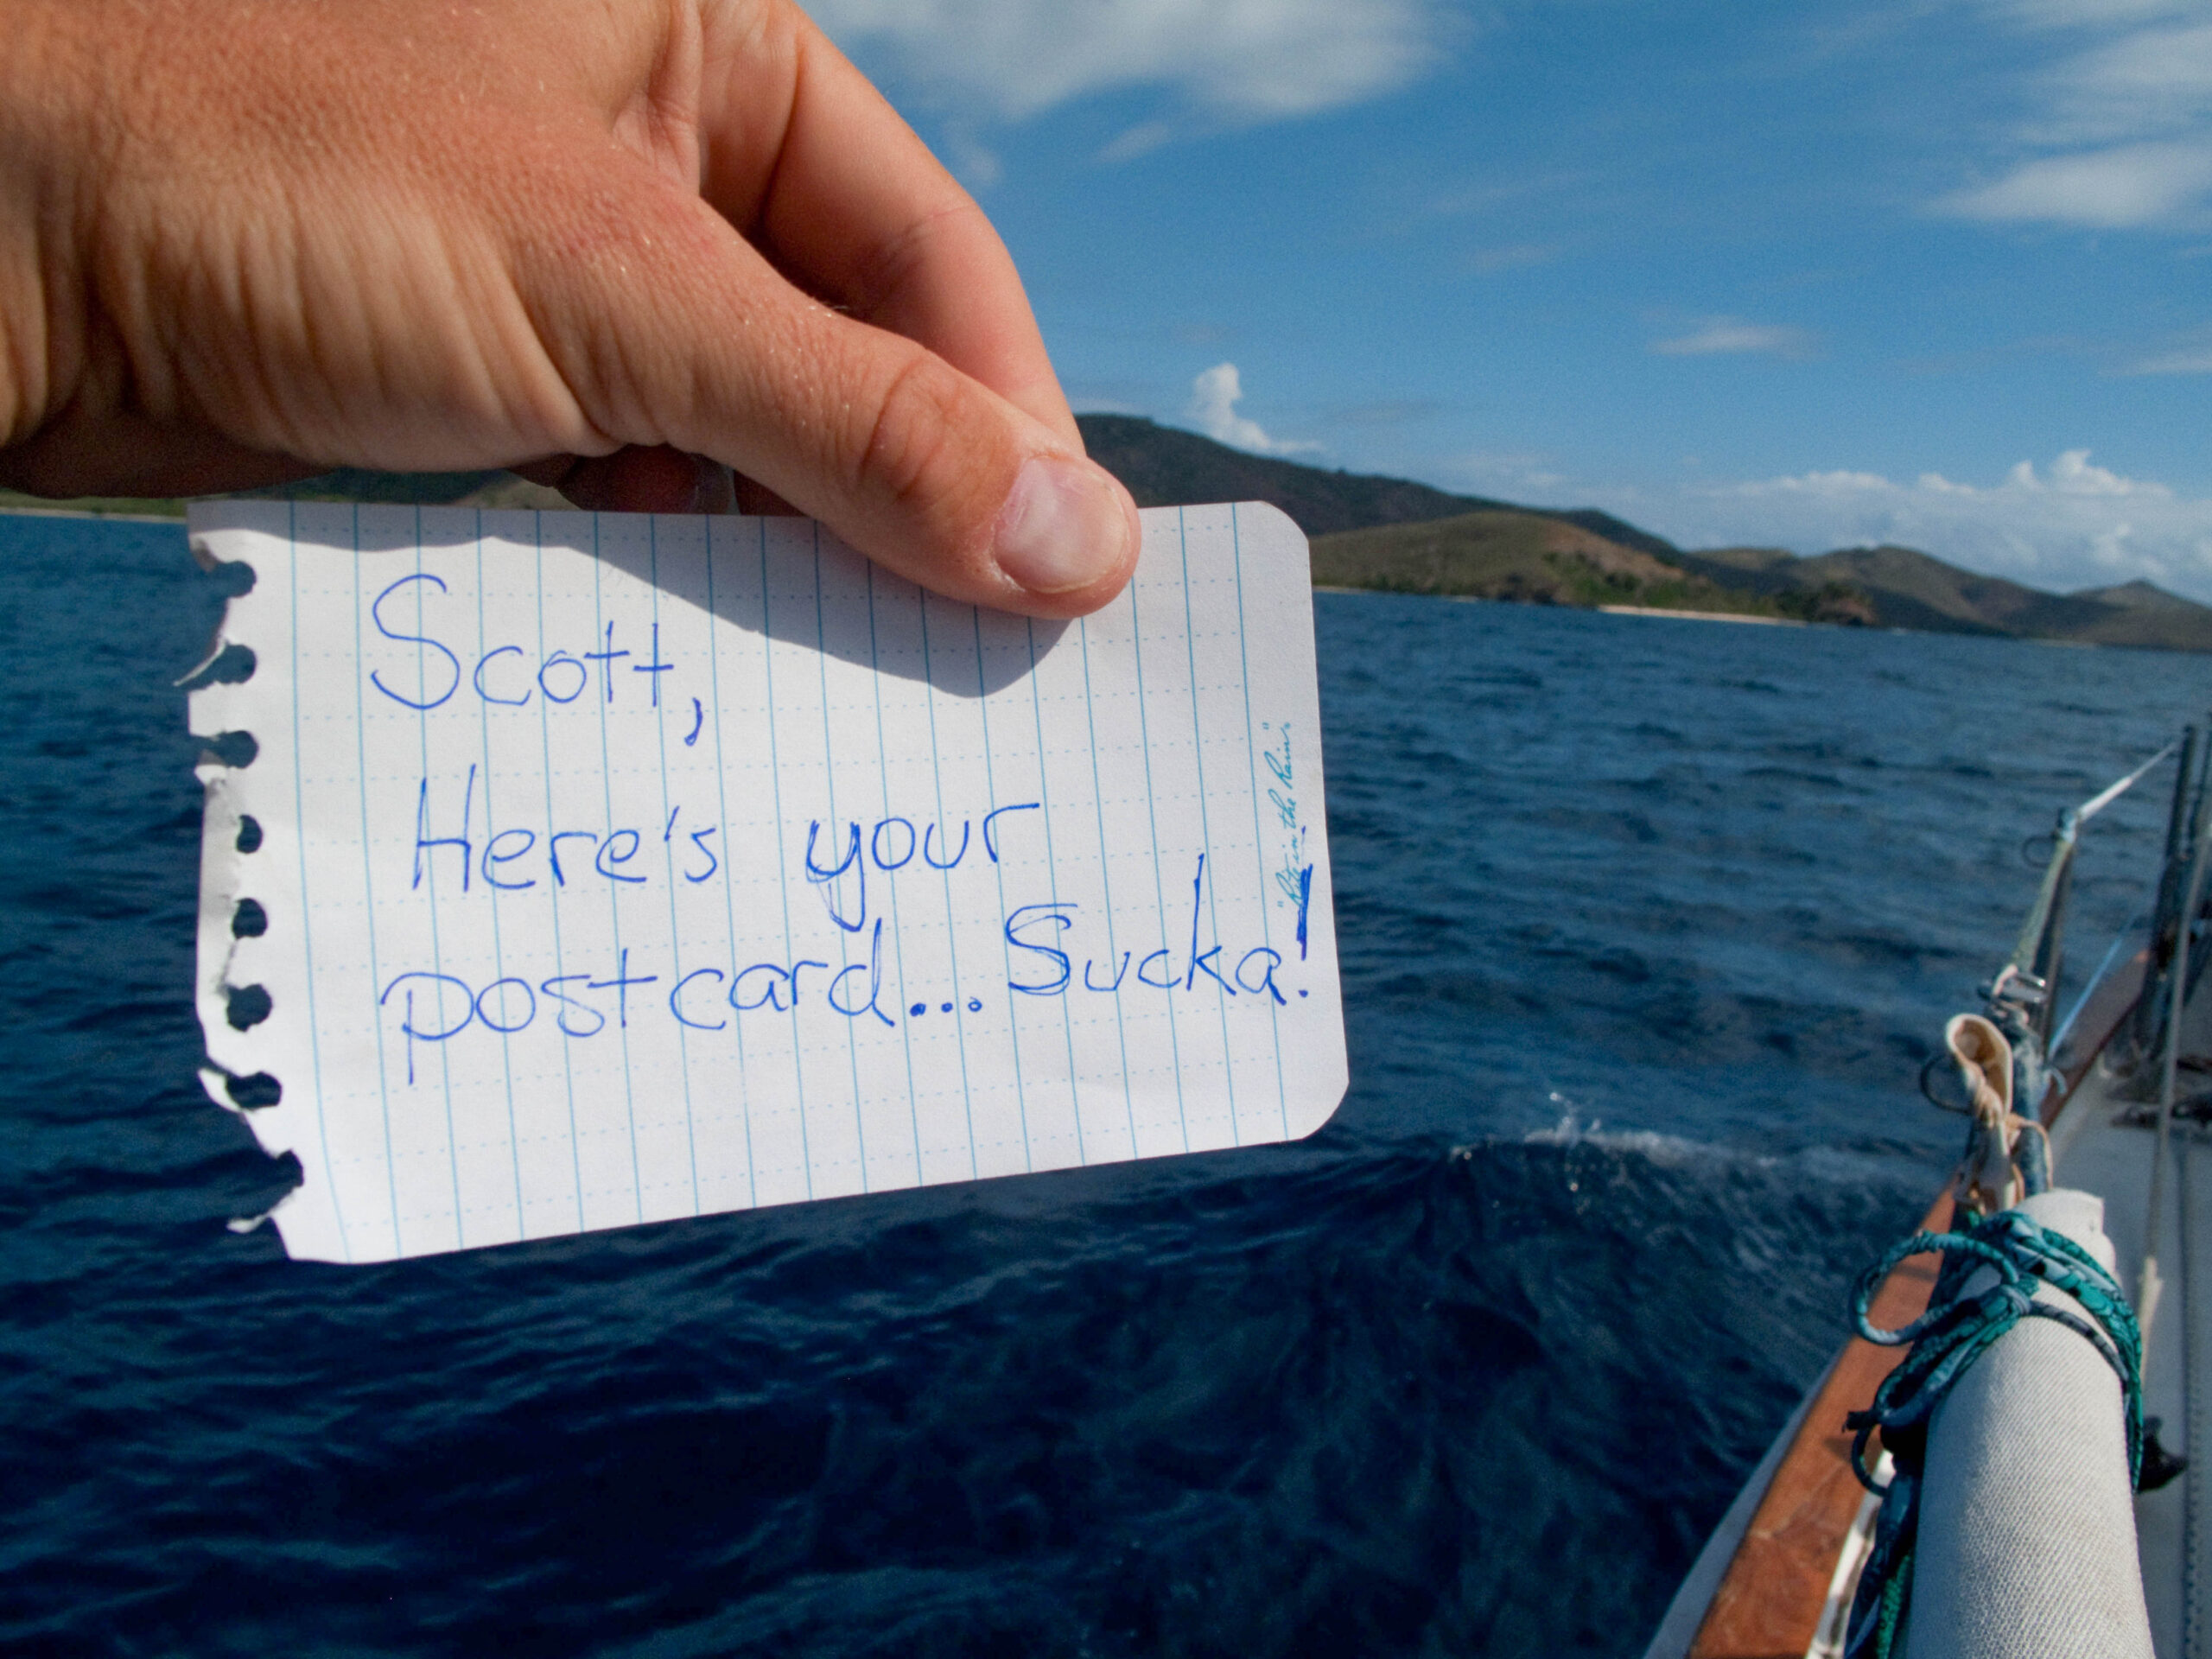 Scott,
Here's your
postcard... Sucka!
"Rite in the Rain".